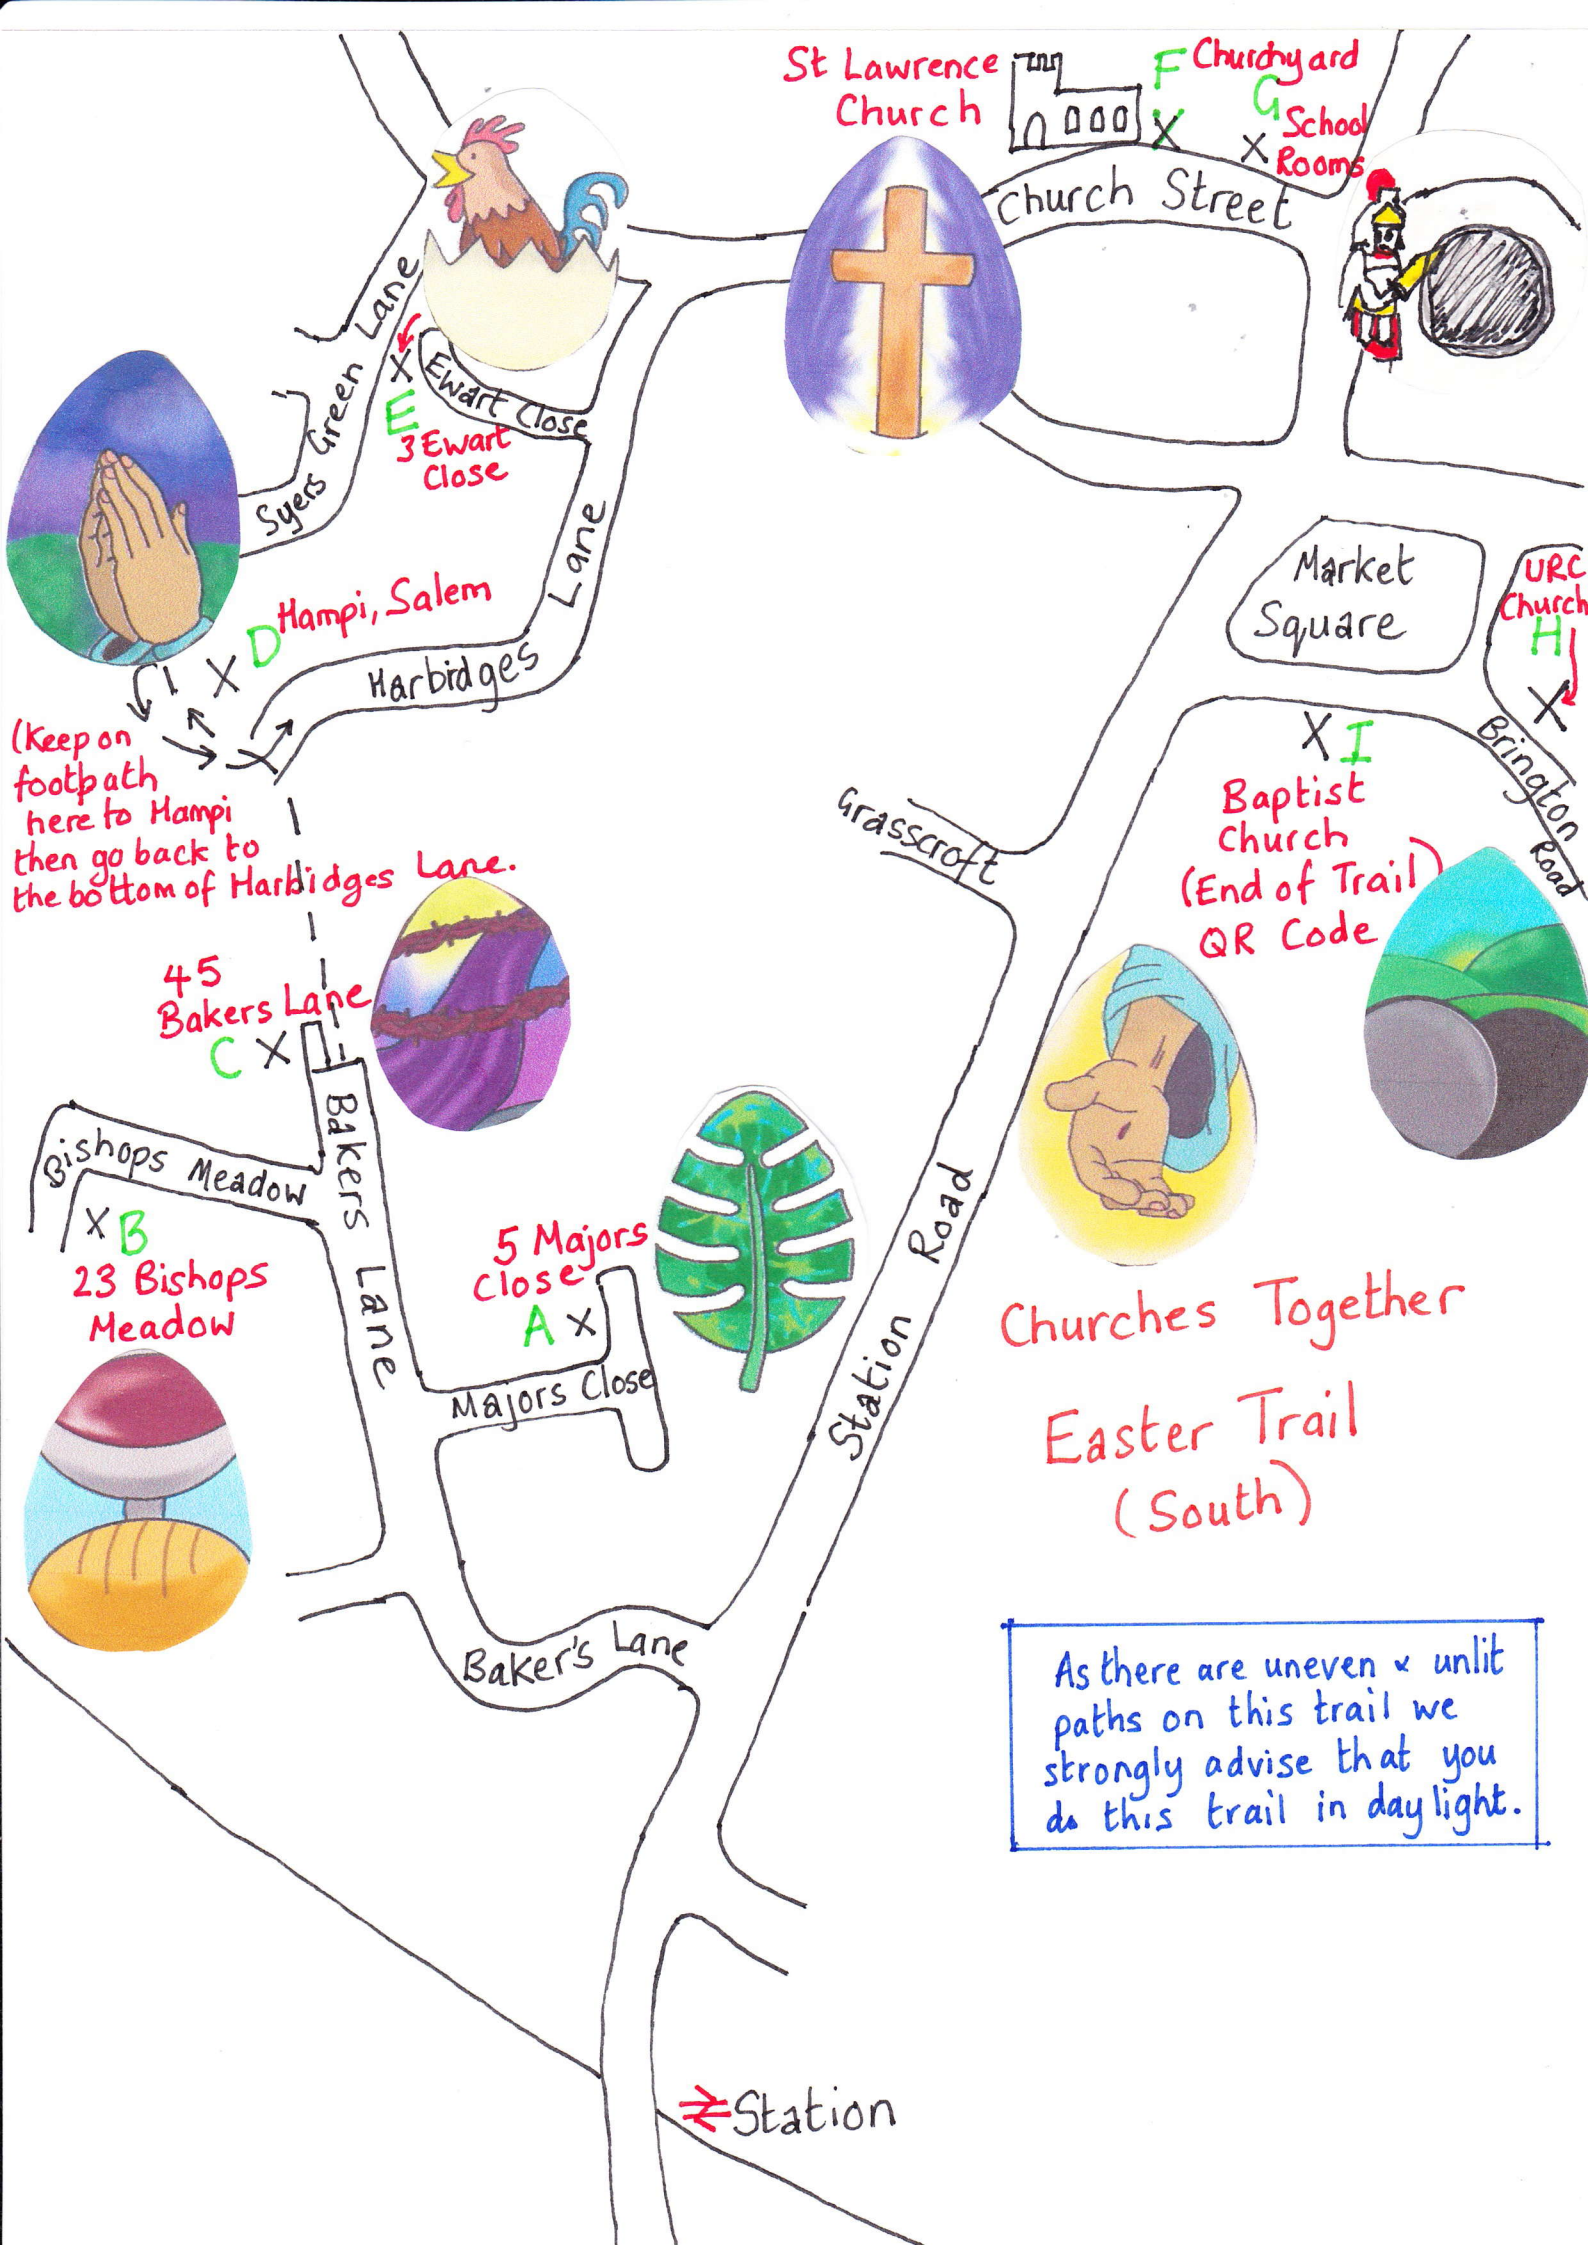 St Lawrence
Church
F Churchyard
G School
Rooms
Church Street
Syers Green Lane
Ewart Close
E
3 Ewart
Close
Hampi, Salem
D
Harbidges Lane
(Keep on
footpath
here to Hampi
then go back to
the bottom of Harbidges Lane.
Market
Square
URC
Church
H
I
Baptist
Church
(End of Trail)
QR Code
Brington Road
Grasscroft
45
Bakers Lane
C
Bakers Lane
Bishops Meadow
B
23 Bishops
Meadow
5 Majors
Close
A
Majors Close
Station Road
Baker's Lane
Churches Together
Easter Trail
(South)
As there are uneven & unlit
paths on this trail we
strongly advise that you
do this trail in daylight.
Station